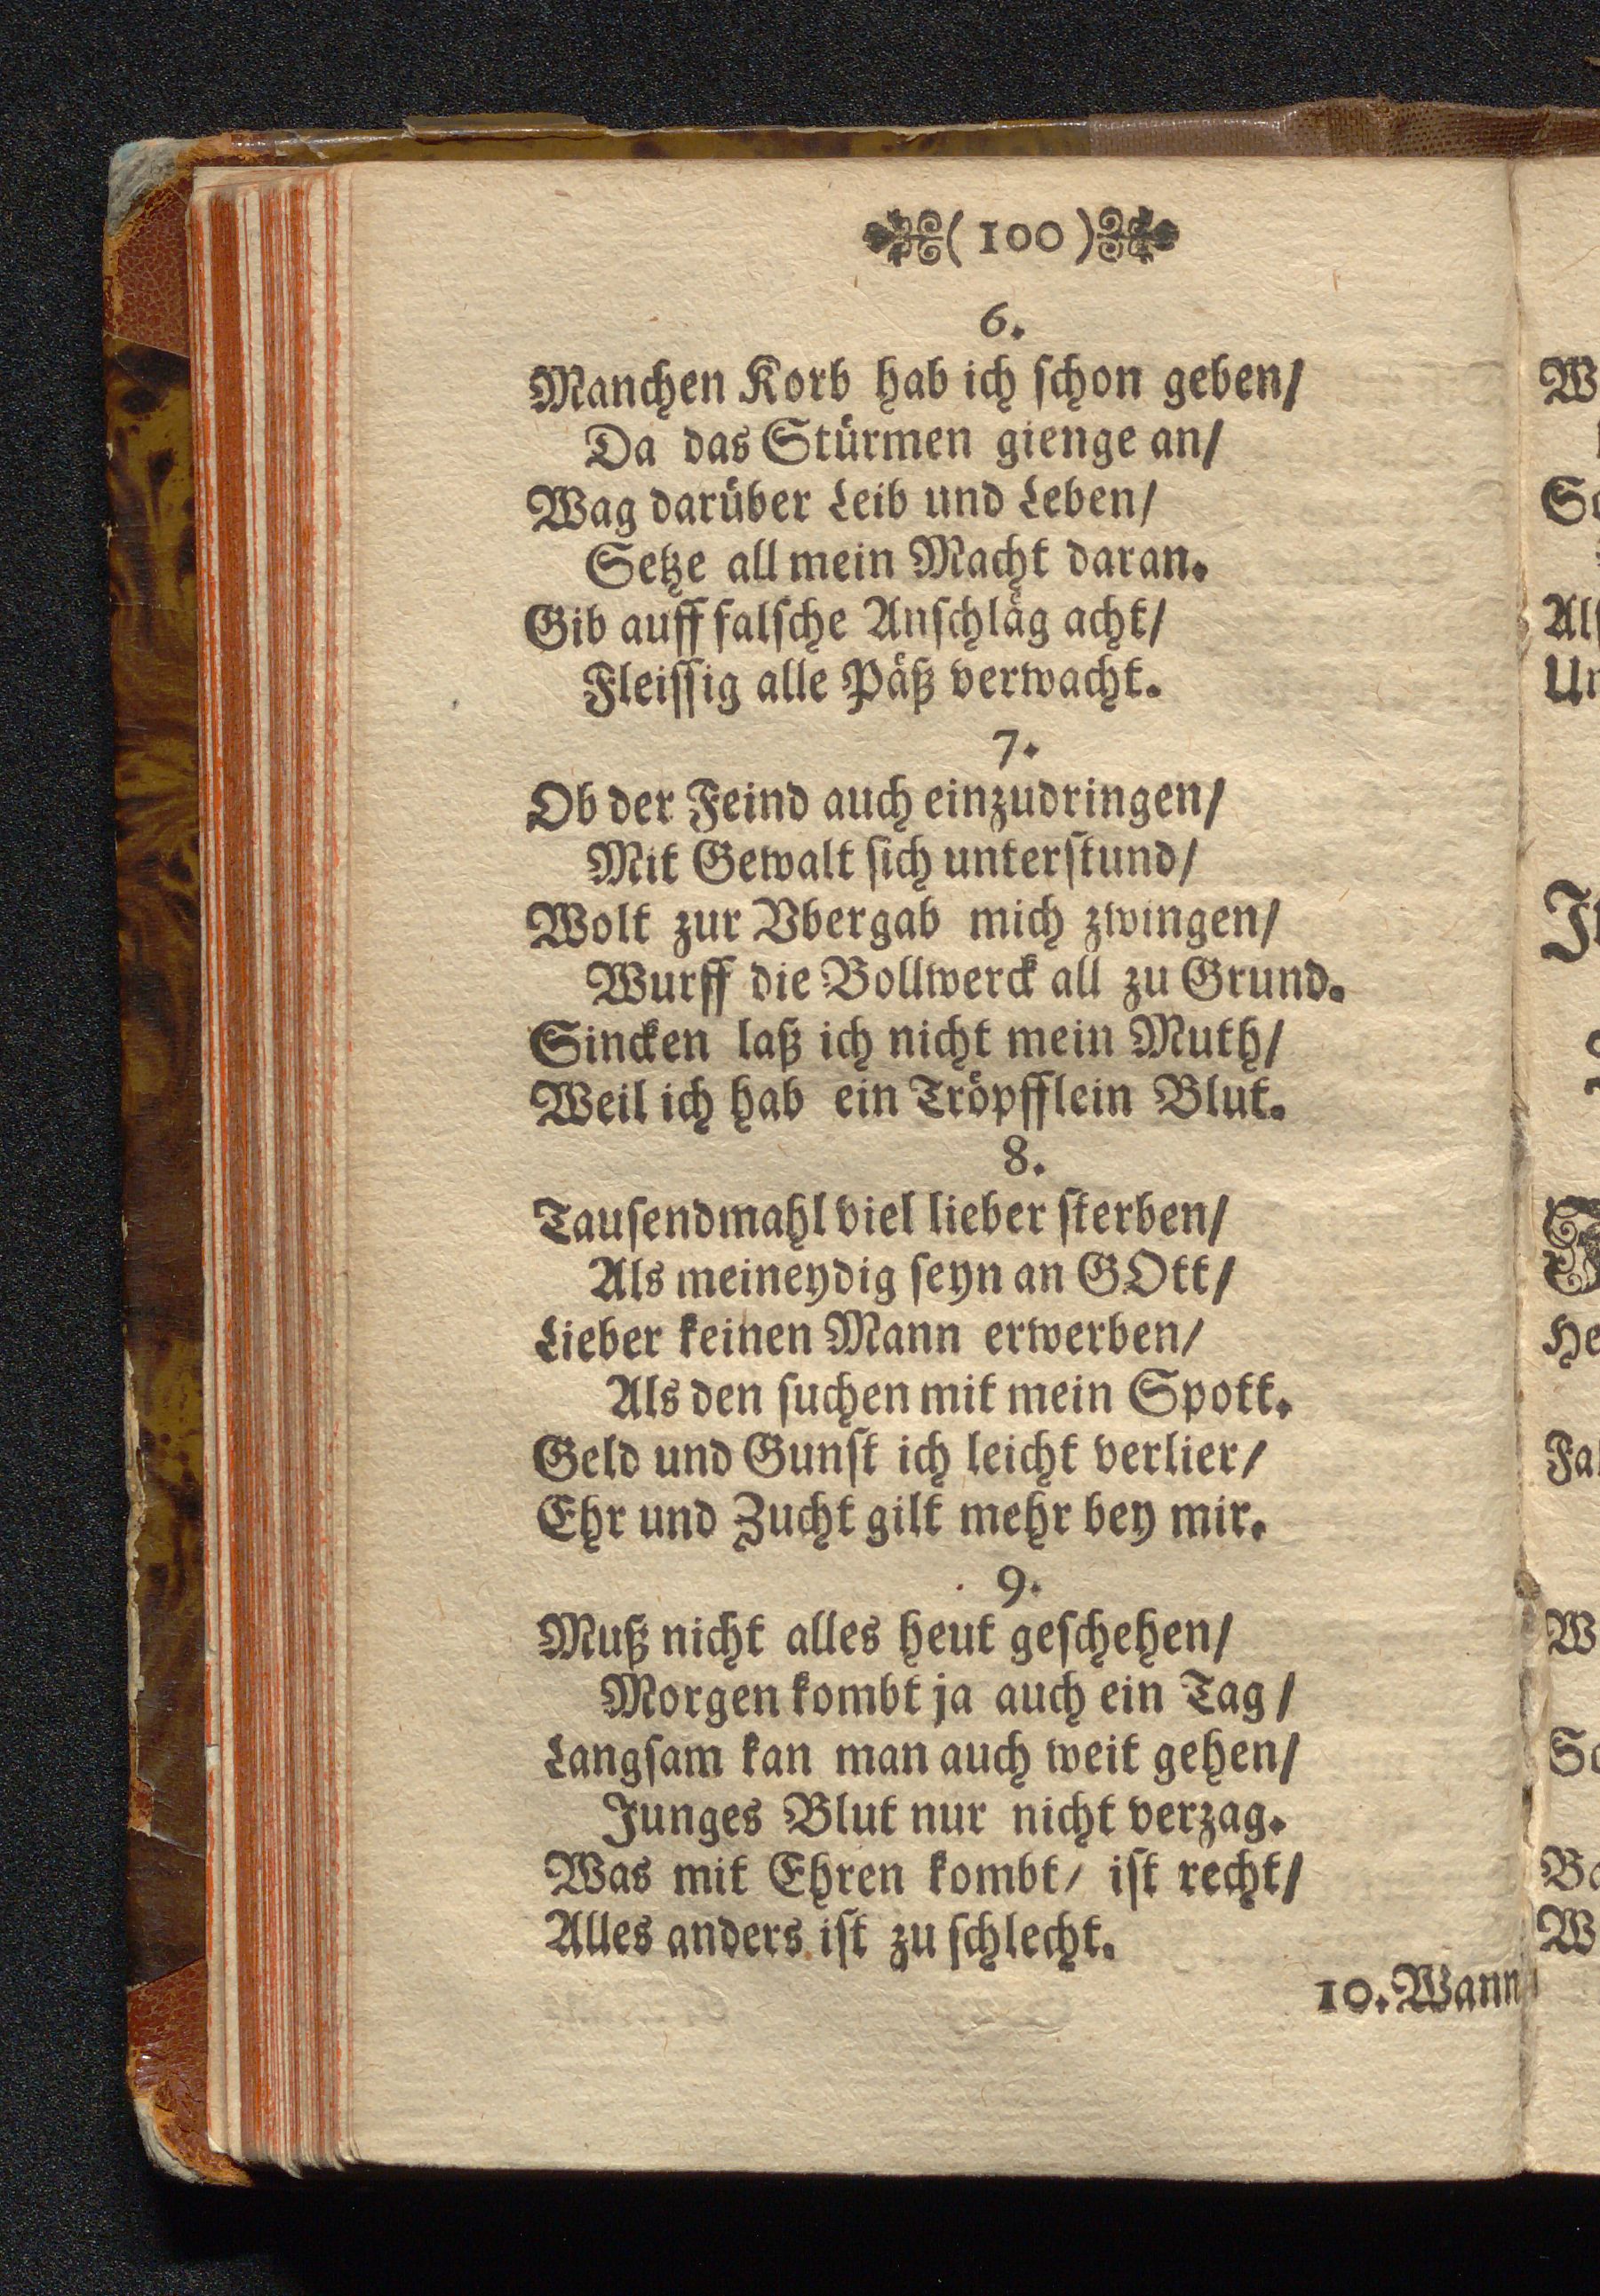 ( 100 )
6.
Manchen Korb hab ich ſchon geben/
Da das Stürmen gienge an/
Wag darüber Leib und Leben/
Setze all mein Macht daran.
Gib auff falſche Anſchläg acht/
Fleiſſig alle Päß verwacht.
7.
Ob der Feind auch einzudringen/
Mit Gewalt ſich unterſtund/
Wolt zur Vbergab mich zwingen/
Wurff die Bollwerck all zu Grund.
Sincken laß ich nicht mein Muth/
Weil ich hab ein Tröpfflein Blut.
8.
Tauſendmahl viel lieber ſterben/
Als meineydig ſeyn an GOtt/
Lieber keinen Mann erwerben/
Als den ſuchen mit mein Spott.
Geld und Gunſt ich leicht verlier/
Ehr und Zucht gilt mehr bey mir.
9.
Muß nicht alles heut geſchehen/
Morgen kombt ja auch ein Tag/
Langſam kan man auch weit gehen/
Junges Blut nur nicht verzag.
Was mit Ehren kombt/ iſt recht/
Alles anders iſt zu ſchlecht.
10. Wann